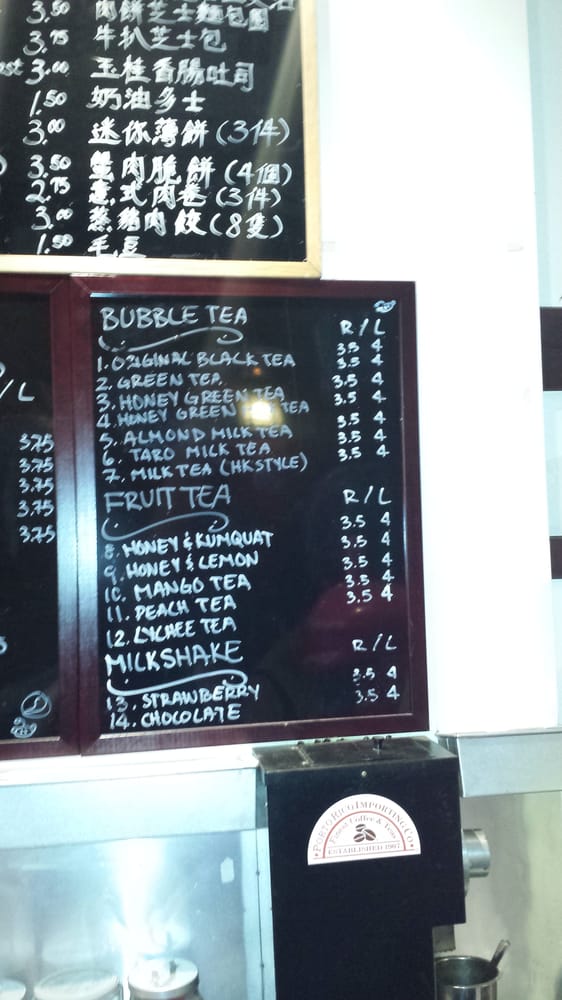 3.50 肉餅芝士麵包圈
3.75 牛扒芝士包
3.00 玉桂香腸吐司
1.50 奶油多士
3.00 迷你薄餅(3件)
3.50 蟹肉脆餅(4個)
2.75 意式肉卷(3件)
3.00 蒸豬肉餃(8隻)
1.50 毛豆
/L
3.75
3.75
3.75
3.75
3.75
BUBBLE TEA R/L
1. ORIGINAL BLACK TEA 3.5 4
2. GREEN TEA 3.5 4
3. HONEY GREEN TEA 3.5 4
4. HONEY GREEN TEA 3.5 4
5. ALMOND MILK TEA 3.5 4
6. TARO MILK TEA 3.5 4
7. MILK TEA (HK STYLE) 3.5 4
FRUIT TEA R/L
8. HONEY & KUMQUAT 3.5 4
9. HONEY & LEMON 3.5 4
10. MANGO TEA 3.5 4
11. PEACH TEA 3.5 4
12. LYCHEE TEA 3.5 4
MILKSHAKE R/L
13. STRAWBERRY 3.5 4
14. CHOCOLATE 3.5 4
PORTO RICO IMPORTING CO.
Finest Coffee & Teas
ESTABLISHED 1907